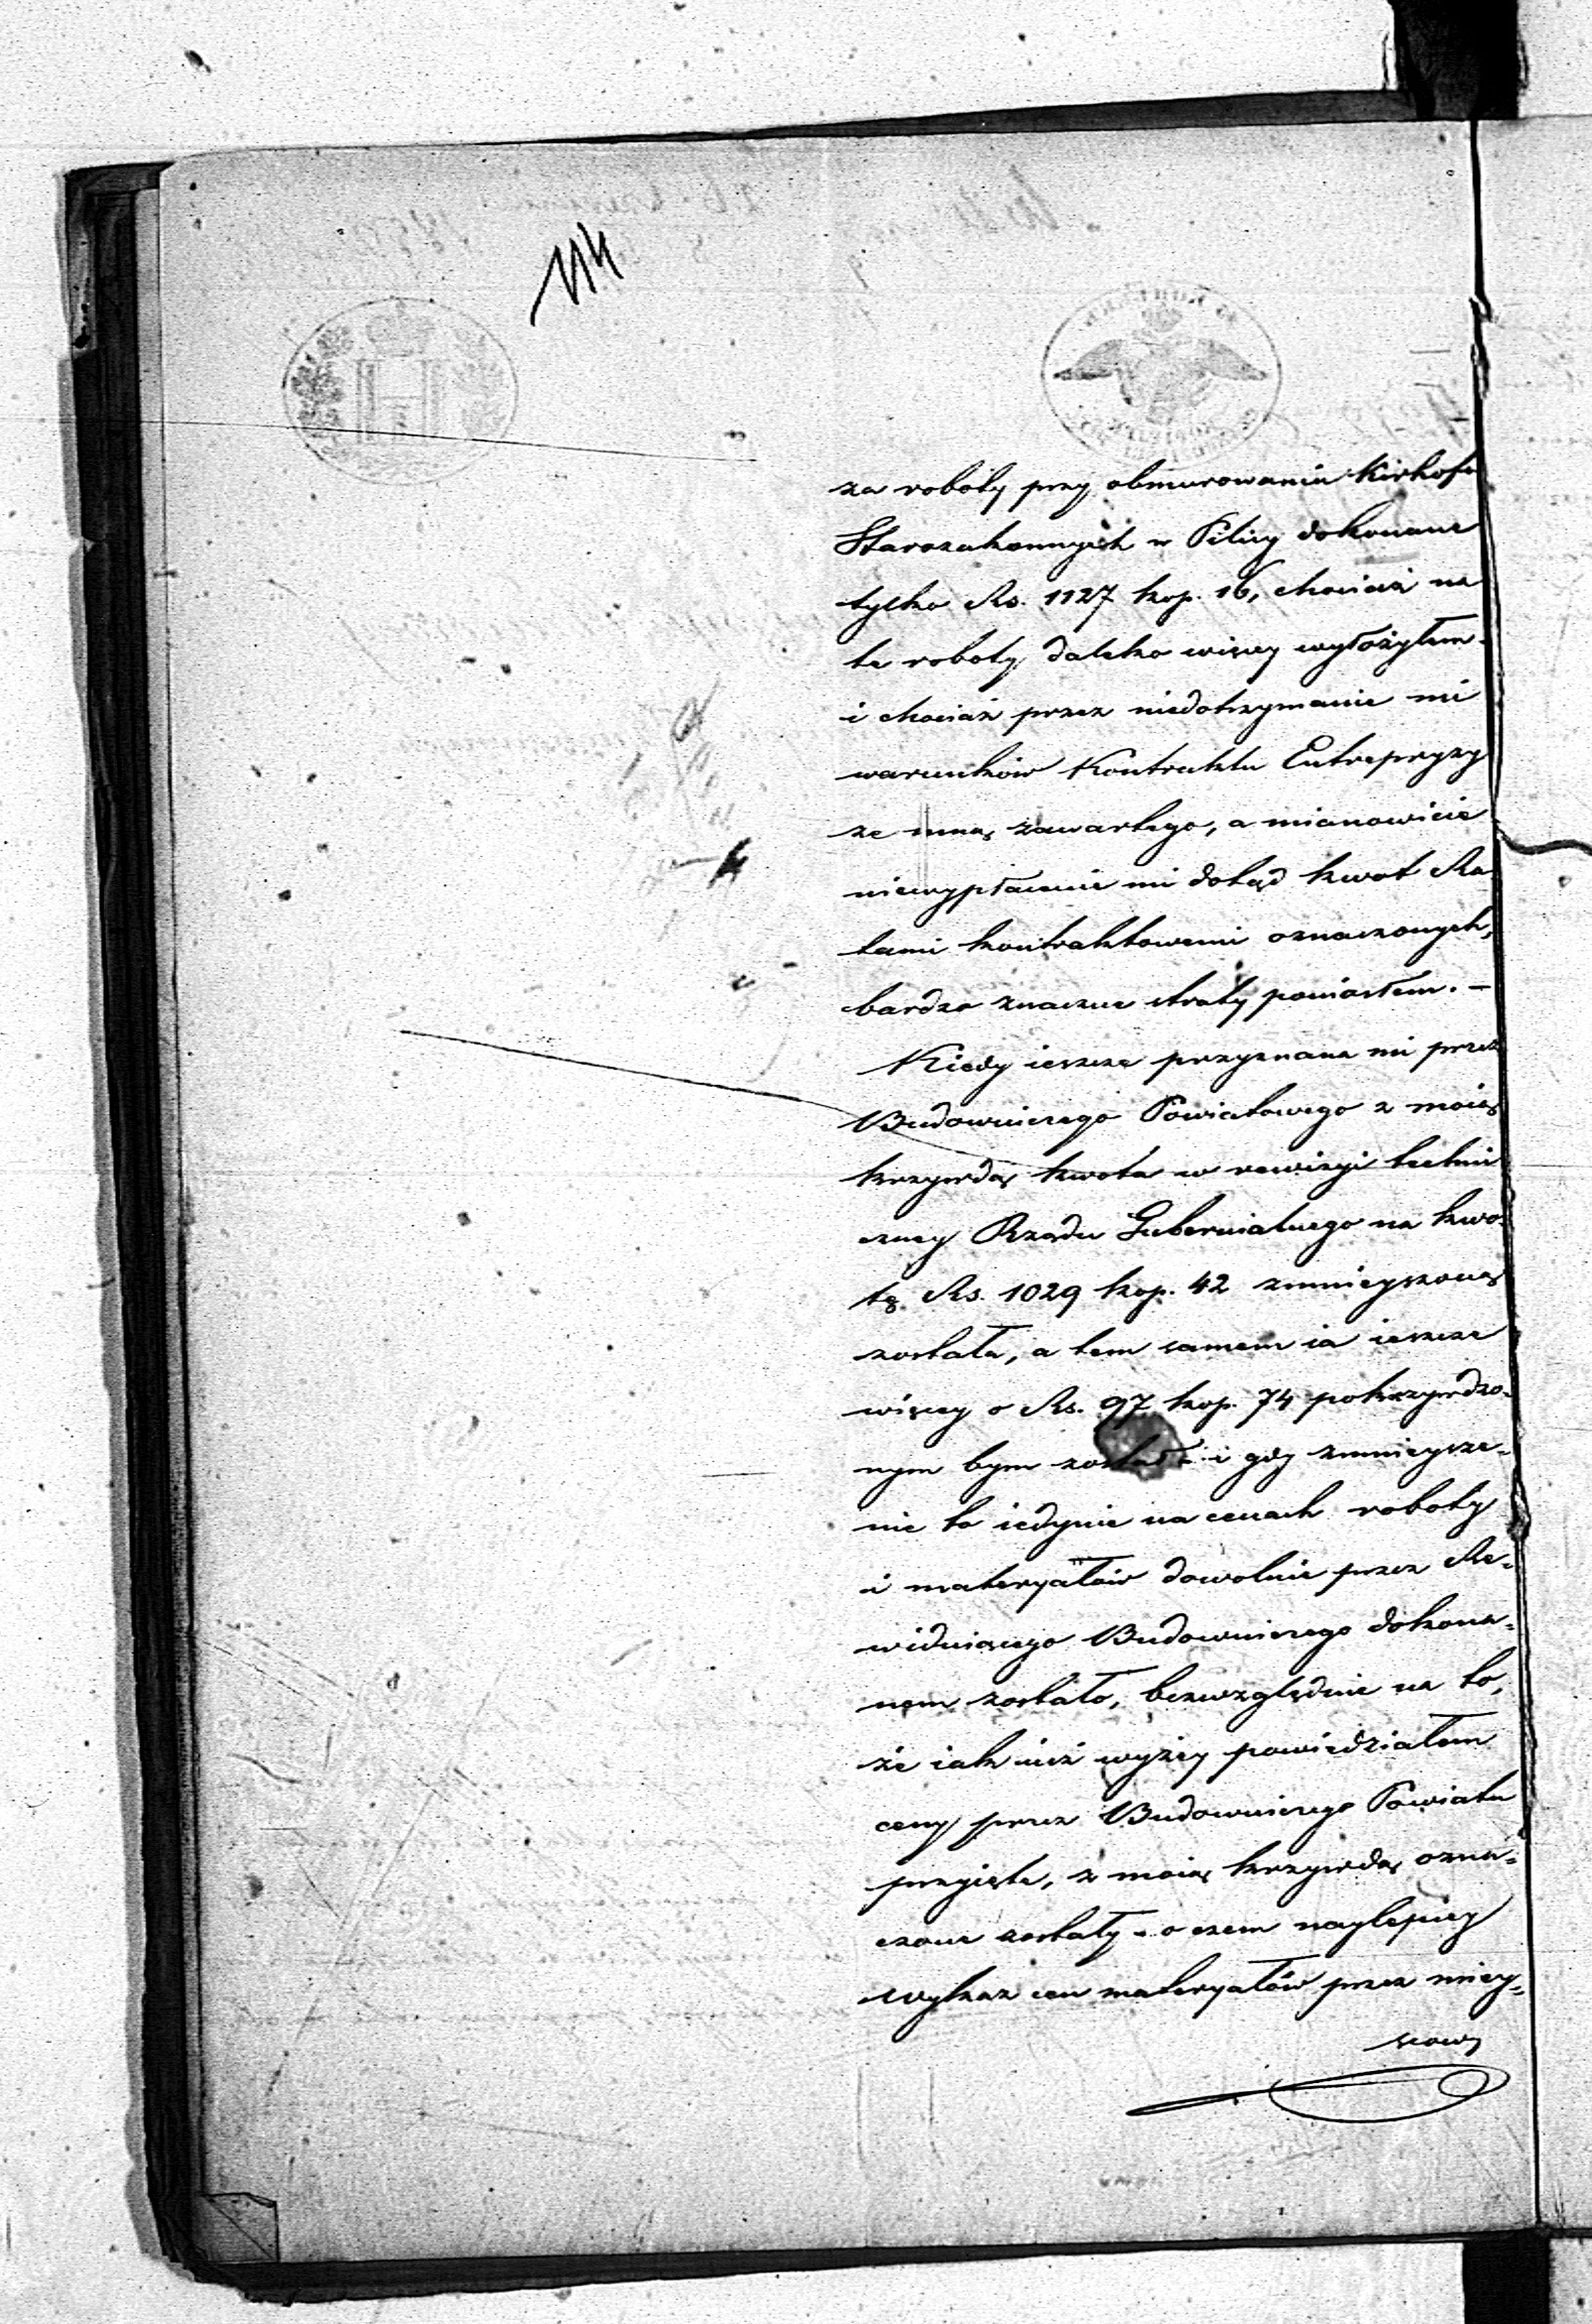 114
za roboty przy obmurowaniu Kirkofu
Starozakonnych w Pilicy dokonane
tylko Rs. 1127 kop. 16, chociaż na
te roboty daleko więcey wyłożyłem
i chociaż przez niedotrzymanie mi
warunków Kontraktu Entrepryzy
ze mną zawartego, a mianowicie
niewypłacenie mi dotąd kwot Ra
tami kontraktowemi oznaczonych,
bardzo znaczne straty poniosłem. –
Kiedy ieszcze przyznana mi przez
Budowniczego Powiatowego z moią
krzywdą kwota w rewizyi techni
czney Rządu Gubernialnego na kwo
tę Rs. 1029 kop. 42 zmnieyszoną
została, a tem samem ia ieszcze
więcey o Rs. 97 kop. 74 pokrzywdzo-
nym bym został – i gdy zmnieysze-
nie to iedynie na cenach roboty
i materyałów dowolnie przez Re-
widuiącego Budowniczego dokona-
nem zostało, bezwzględnie na to,
że iak iuż wyżey powiedziałem
ceny przez Budowniczego Powiatu
przyięte, z moią krzywdą ozna-
czone zostały – o czem naylepiey
wykaz cen materyałów przez miey-
scową